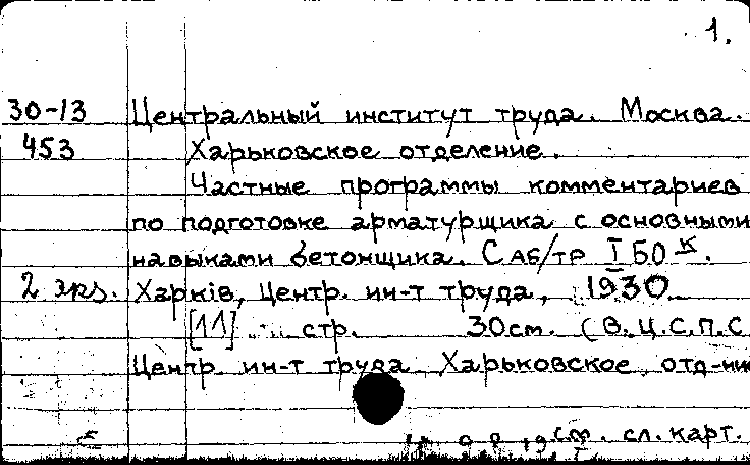 1.
30-13 Центральный институт труда. Москва.
453 Харьковское отделение.
Частные программы комментариев
по подготовке арматурщика с основными
навыками бетонщика. С АБ/ТР I Б0 к.
2 экз. Харкiв, Центр. ин-т труда, 1930
[11] стр. 30 см. (В.Ц.С.П.С
Центр. ин-т труда Харьковское отд-ние
см. сл. карт.